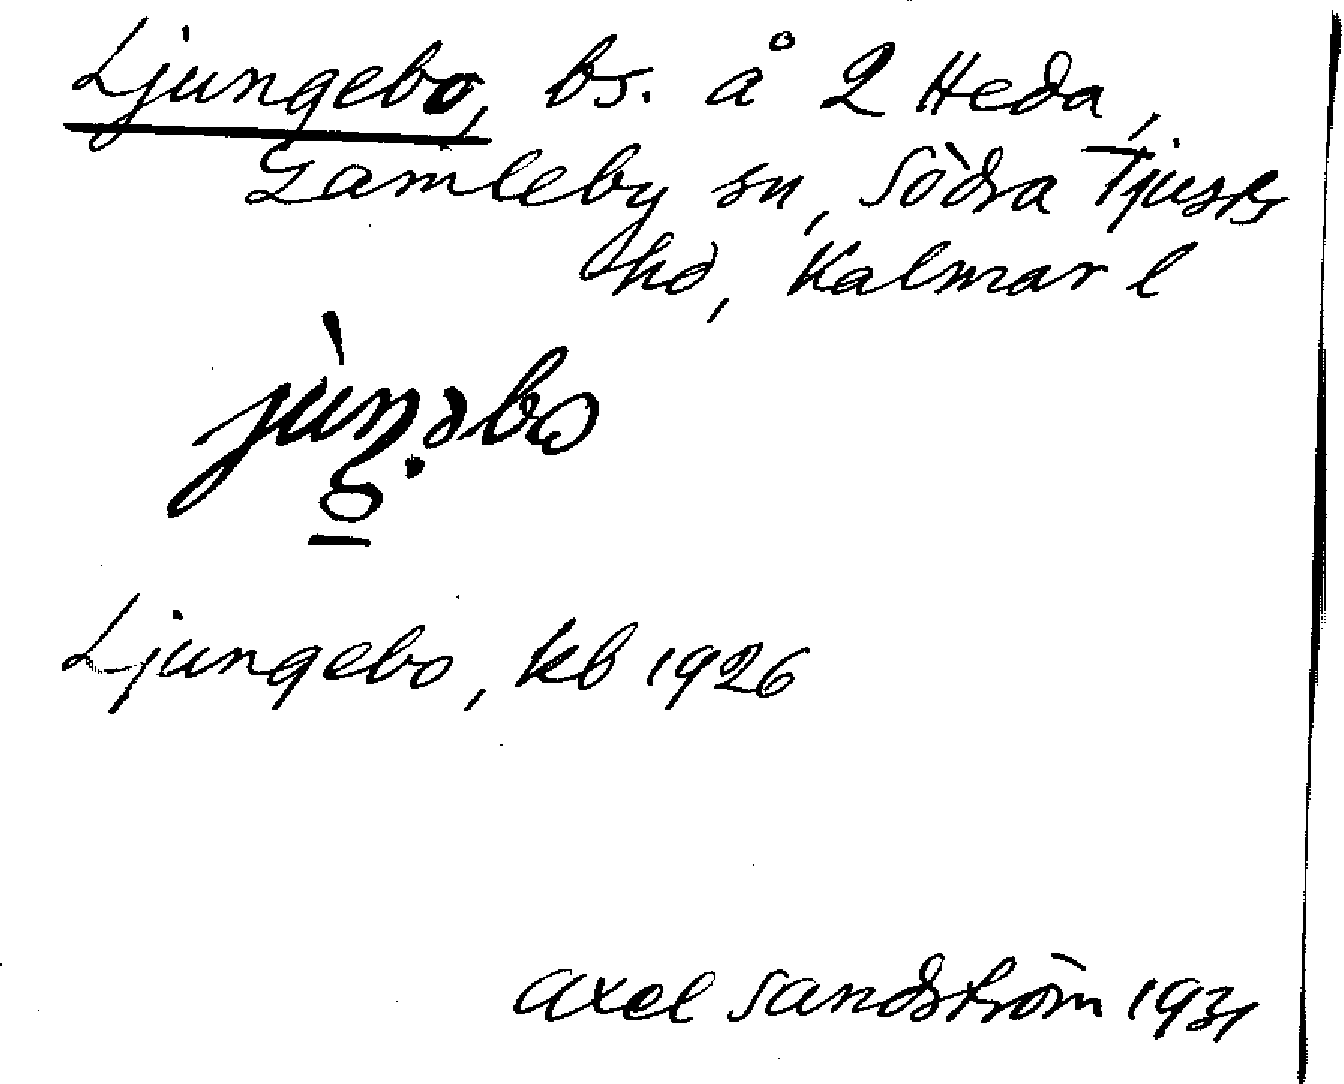 Ljungebo, bs. å 2 Heda,
Gamleby sn, Södra Tjusts
hd, Kalmar l
Ljungebo, kb 1926
Axel Sandström 1931